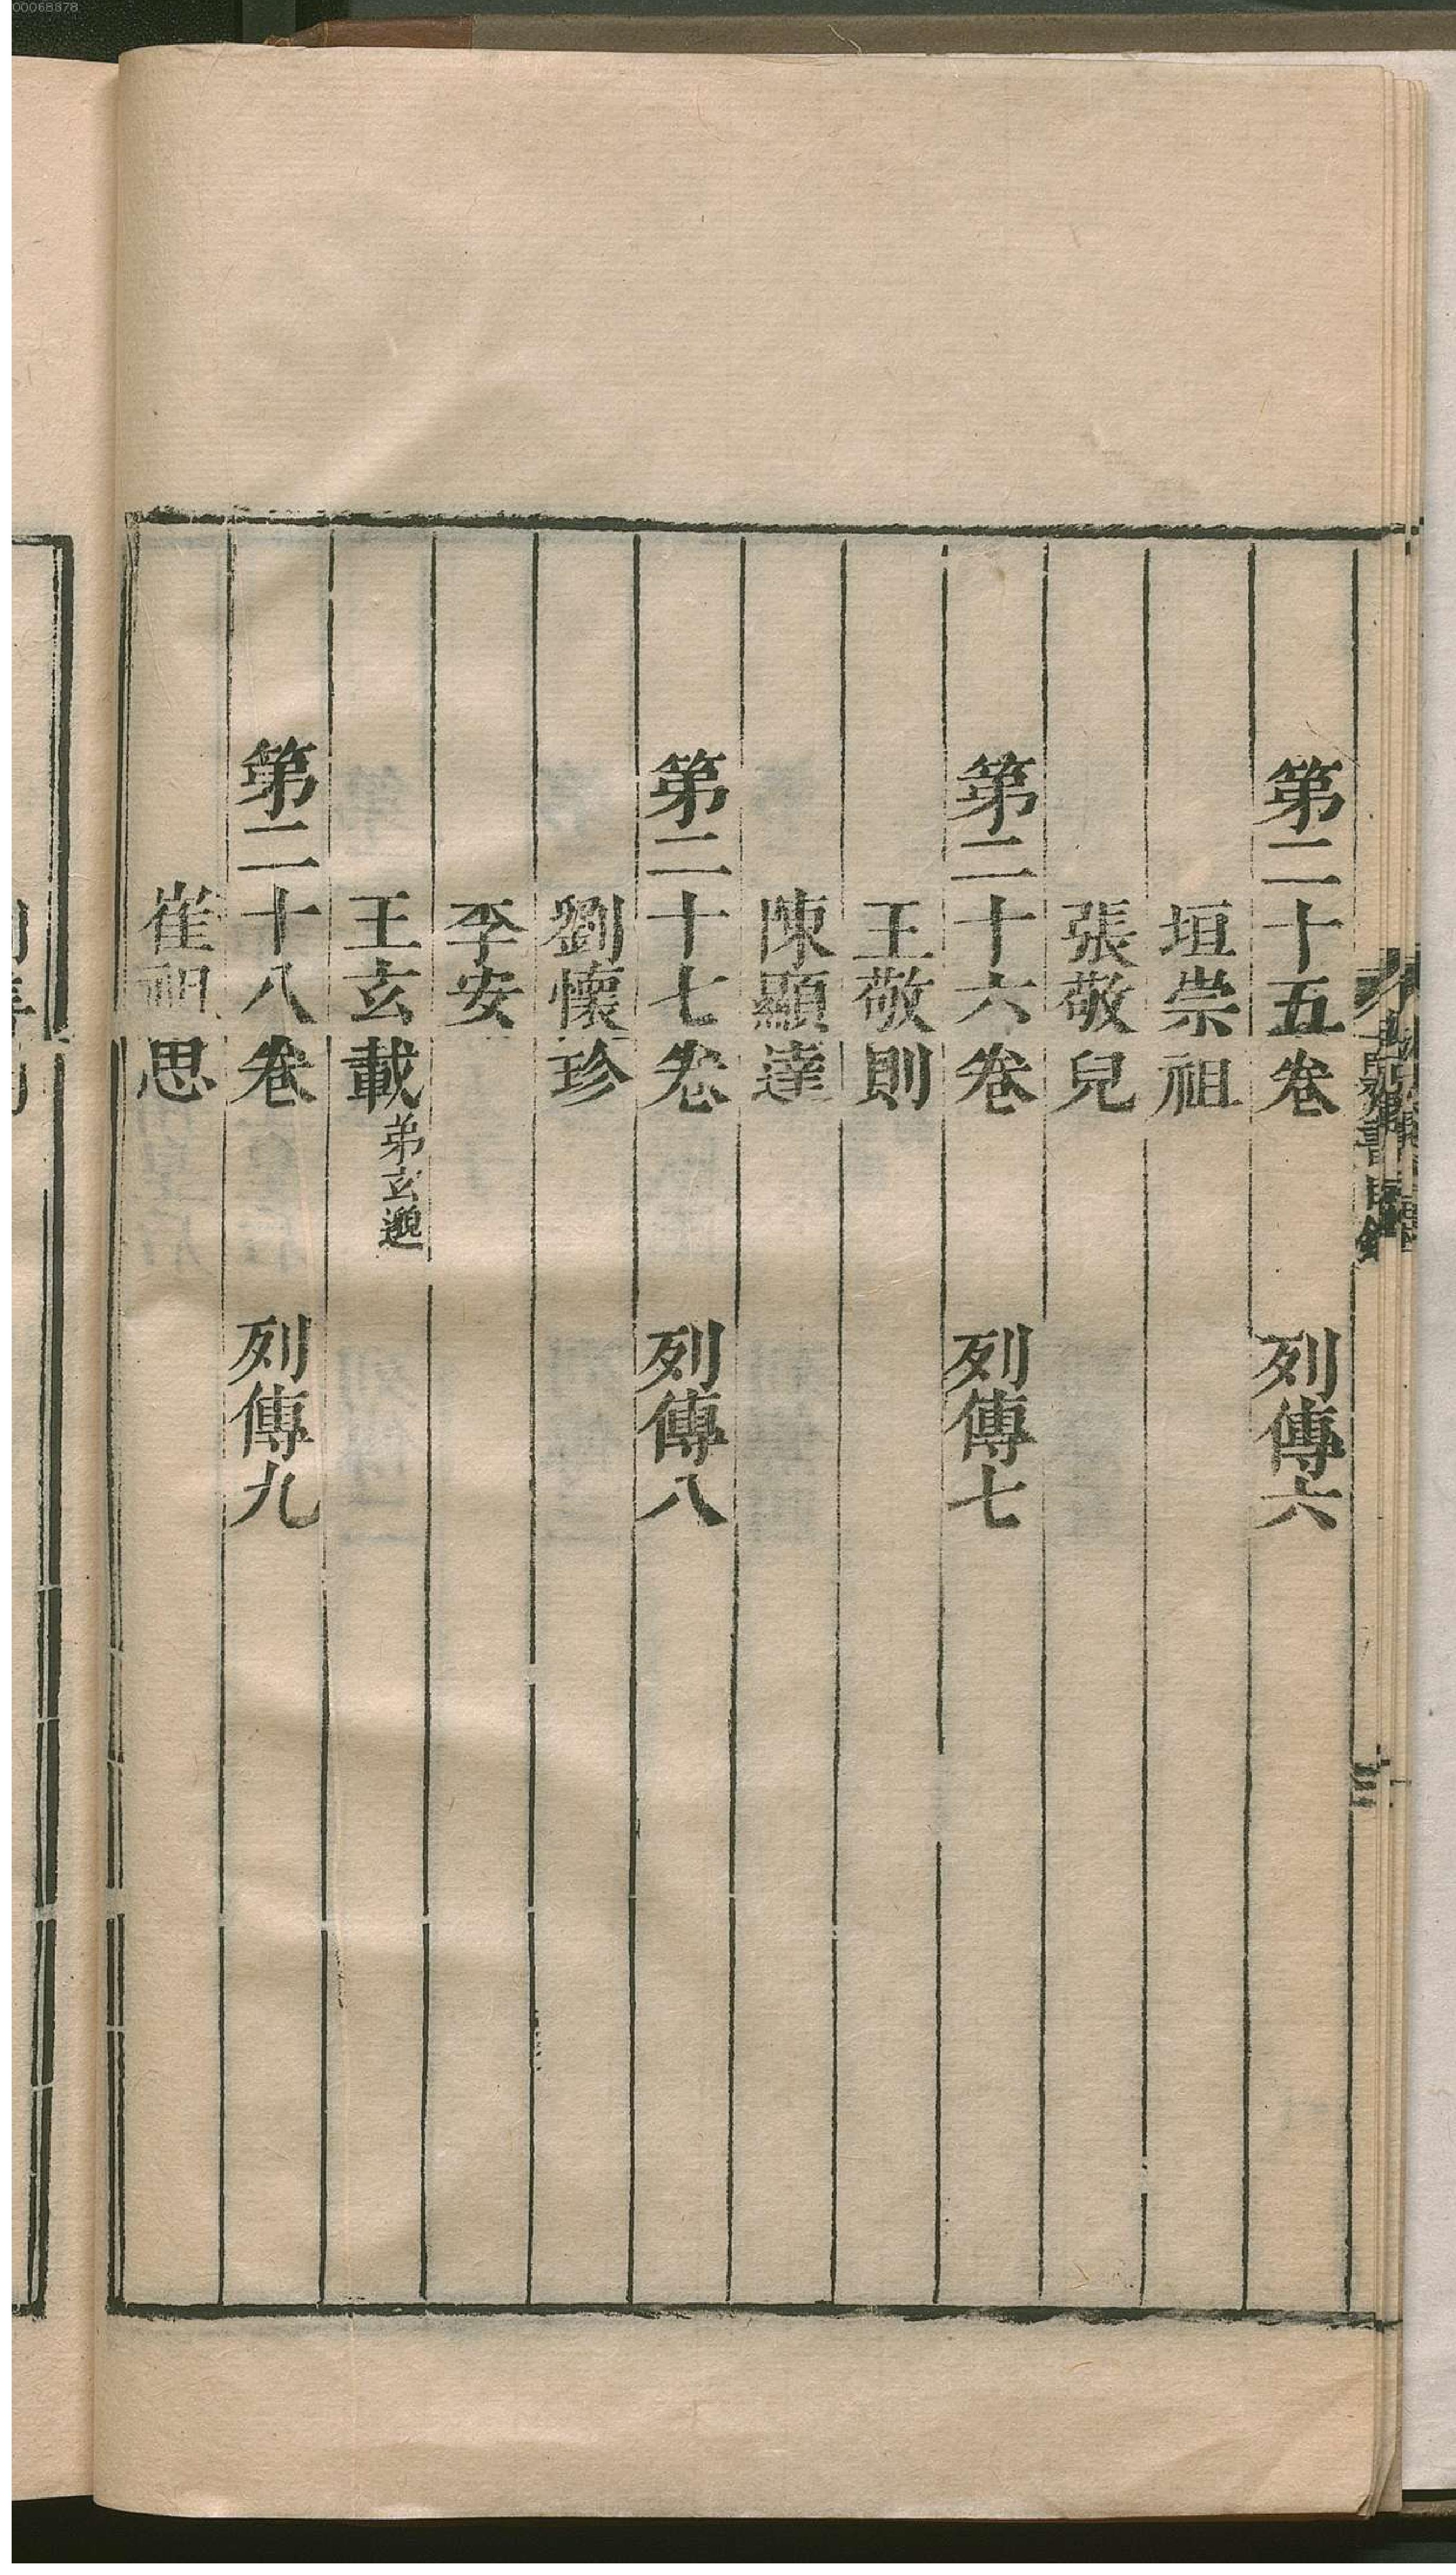 第二十五卷　列傳六
垣崇祖
張敬兒
第二十六卷　列傳七
王敬則
陳顯達
第二十七卷　列傳八
劉懷珍
李安
王玄載弟玄邈
第二十八卷　列傳九
崔祖思
00068378